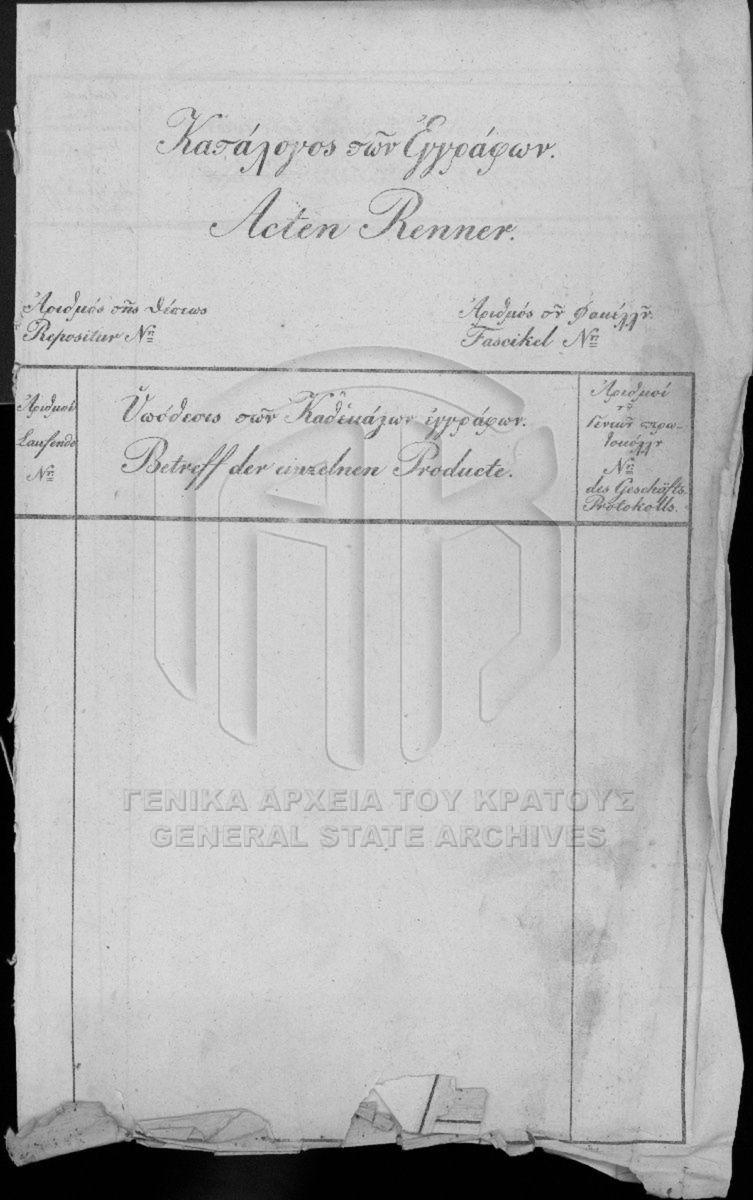 Κατάλογος τῶν Ἐγγράφων.
Acten Renner.
Ἀριθμός τῆς θέσεως
Repositur Nr̲o̲
Ἀριθμός τȣ͂ Φακέλλȣ.
Fascikel Nr̲o̲
Ἀριθμοί
Laufende
Nr̲o̲
Ὑπόθεσις τῶν Καθέκαστων ἐγγράφων.
Betreff der einzelnen Producte.
Ἀριθμοί
τȣ͂
Γενικȣ͂ πρω-
τοκόλλȣ
Nr̲o̲
des Geschäfts
Protokolls.
ΓΕΝΙΚΑ ΑΡΧΕΙΑ ΤΟΥ ΚΡΑΤΟΥΣ
GENERAL STATE ARCHIVES